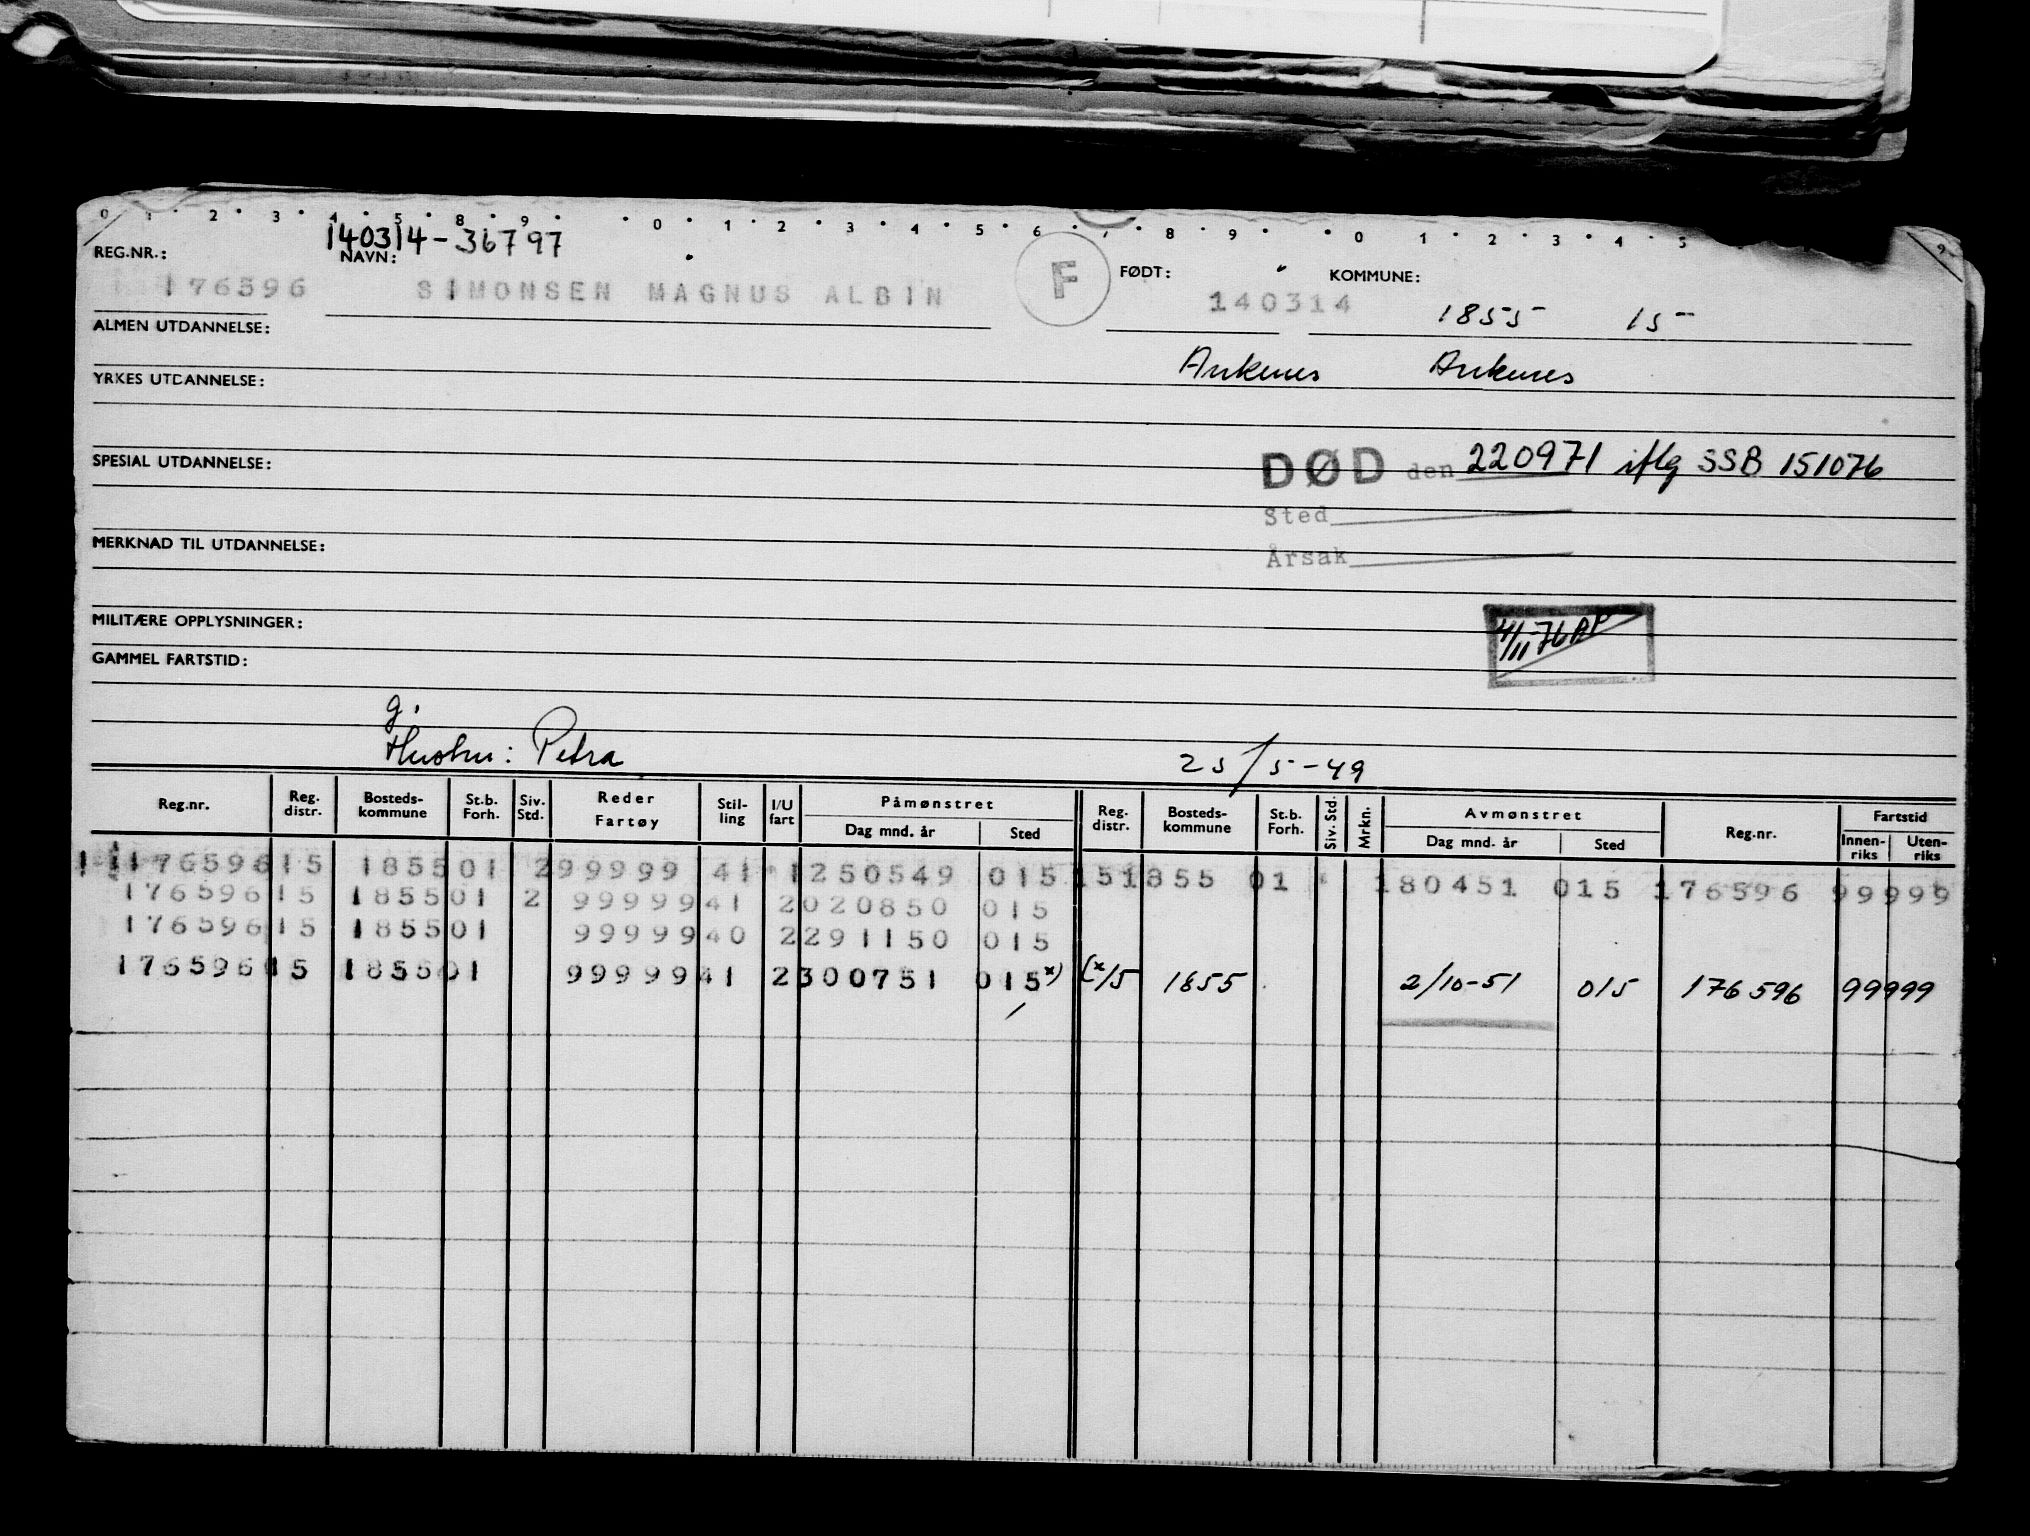 0 1 2 3 4 5 8 9 0 1 2 3 4 5 6 7 8 9 0 1 2 3 4 5 9
140314-36797
REG.NR.: NAVN: FØDT: KOMMUNE:
176596 SIMONSEN MAGNUS ALBIN F 140314 1855 15
ALMEN UTDANNELSE:
Ankenes Ankenes
YRKES UTDANNELSE:
SPESIAL UTDANNELSE:
DØD den 220971 iflg SSB 151076
Sted
MERKNAD TIL UTDANNELSE:
Årsak
MILITÆRE OPPLYSNINGER:
4/11-76
GAMMEL FARTSTID:
g.
Hustru: Petra 25/5-49
Reg.nr. Reg. distr. Bosteds-kommune St.b. Forh. Siv. Std. Reder Fartøy Stil-ling I/U fart Påmønstret Dag mnd. år Sted Reg. distr. Bosteds-kommune St.b. Forh. Siv. Std. Mrkn. Avmønstret Dag mnd. år Sted Reg.nr. Fartstid Innen-riks Uten-riks
176596 15 1855 01 2 99999 41 1 250549 015 15 1855 01 180451 015 176596 99999
176596 15 1855 01 2 99999 41 2 020850 015
176596 15 1855 01 99999 40 2 291150 015
176596 15 1855 01 99999 41 2 300751 015 x) (x/5 1855 2/10-51 015 176596 99999